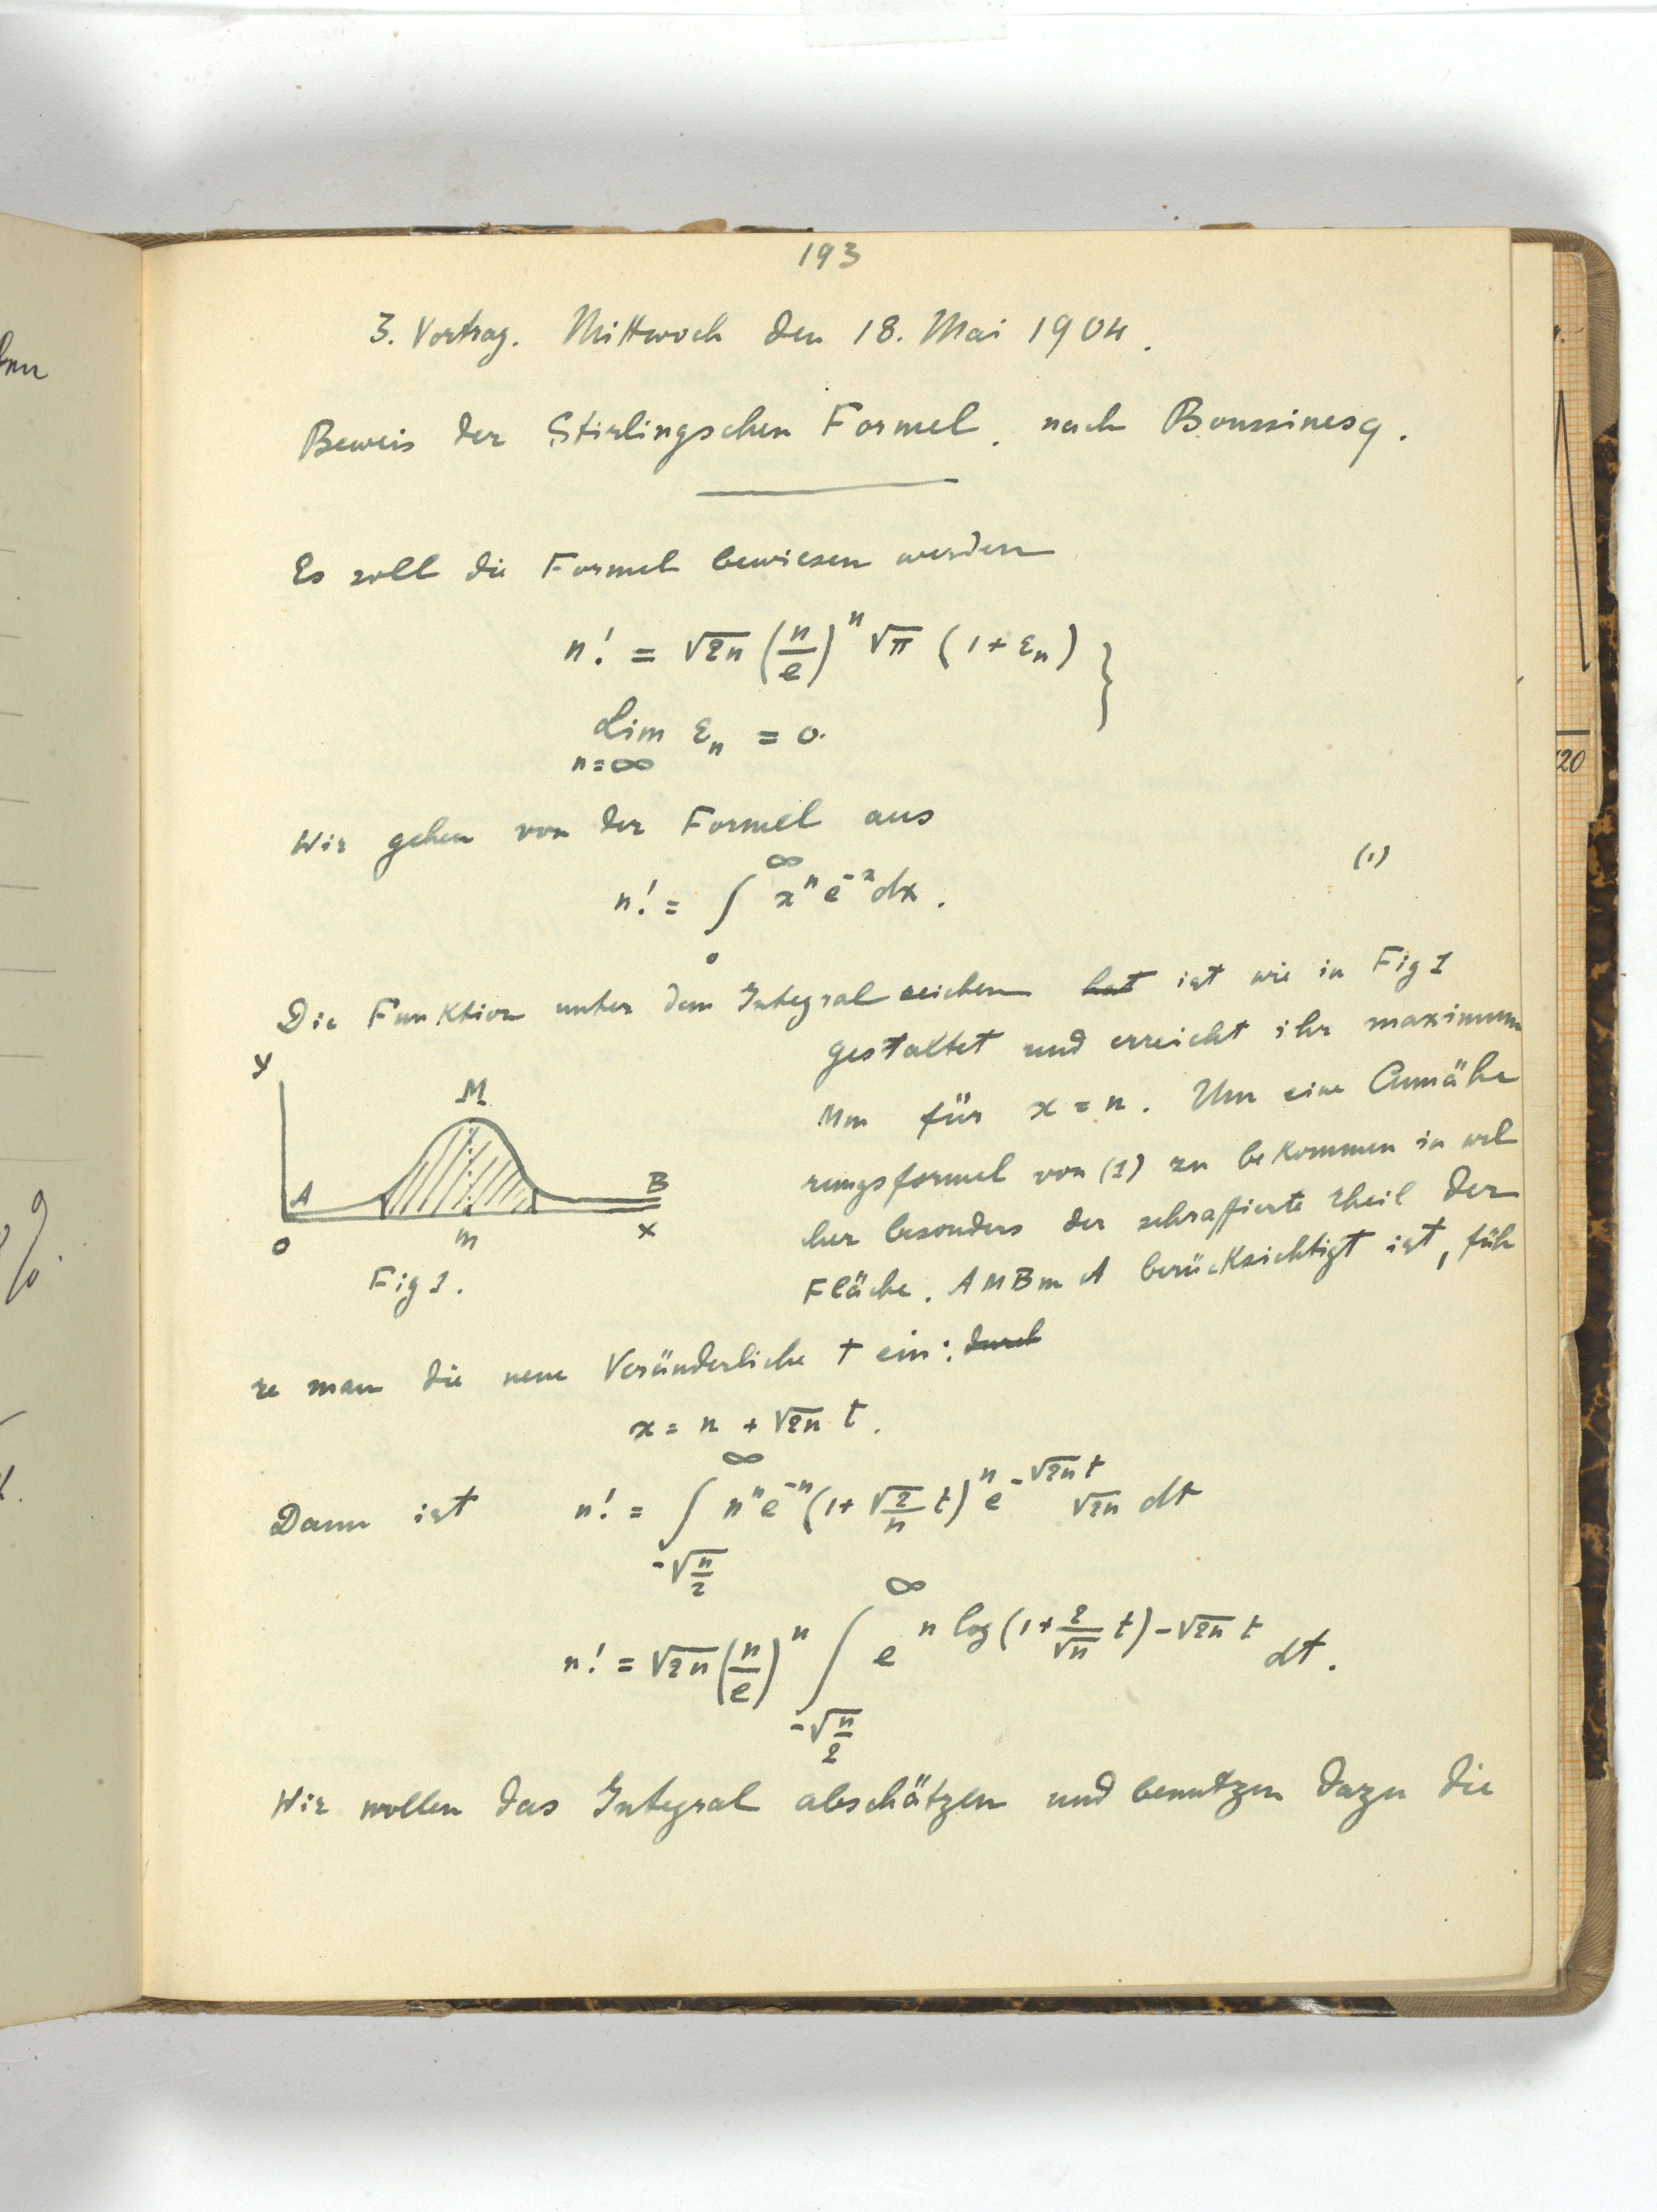 193
3. Vortrag. Mittwoch den 18. Mai 1904.
Beweis der Stirlingschen Formel. nach Boussinesq.
Es soll die Formel bewiesen werden
n! = √2n (n/e)^n √π (1+ε_n) }
Lim ε_n = 0.
n=∞
Wir gehen von der Formel aus
n! = ∫_0^∞ x^n e^-x dx. (1)
Die Funktion unter dem Integralzeichen hat ist wie in Fig 1
gestaltet und erreicht ihr maximum
Mm für x = n. Um eine Annähe
rungsformel von (1) zu bekommen in wel
cher besonders der schraffierte Theil der
Fläche. AMBmA berücksichtigt ist, füh
y
M
A
B
O
m
x
Fig 1.
re man die neue Veränderliche t ein: durch
x = n + √2n t.
Dann ist n! = ∫_{-√n/2}^∞ n^n e^-n (1+√2/n t)^n e^{-√2n t} √2n dt
n! = √2n (n/e)^n ∫_{-√n/2}^∞ e^{n log(1+2/√n t) - √2n t} dt.
Wir wollen das Integral abschätzen und benutzen dazu die
20